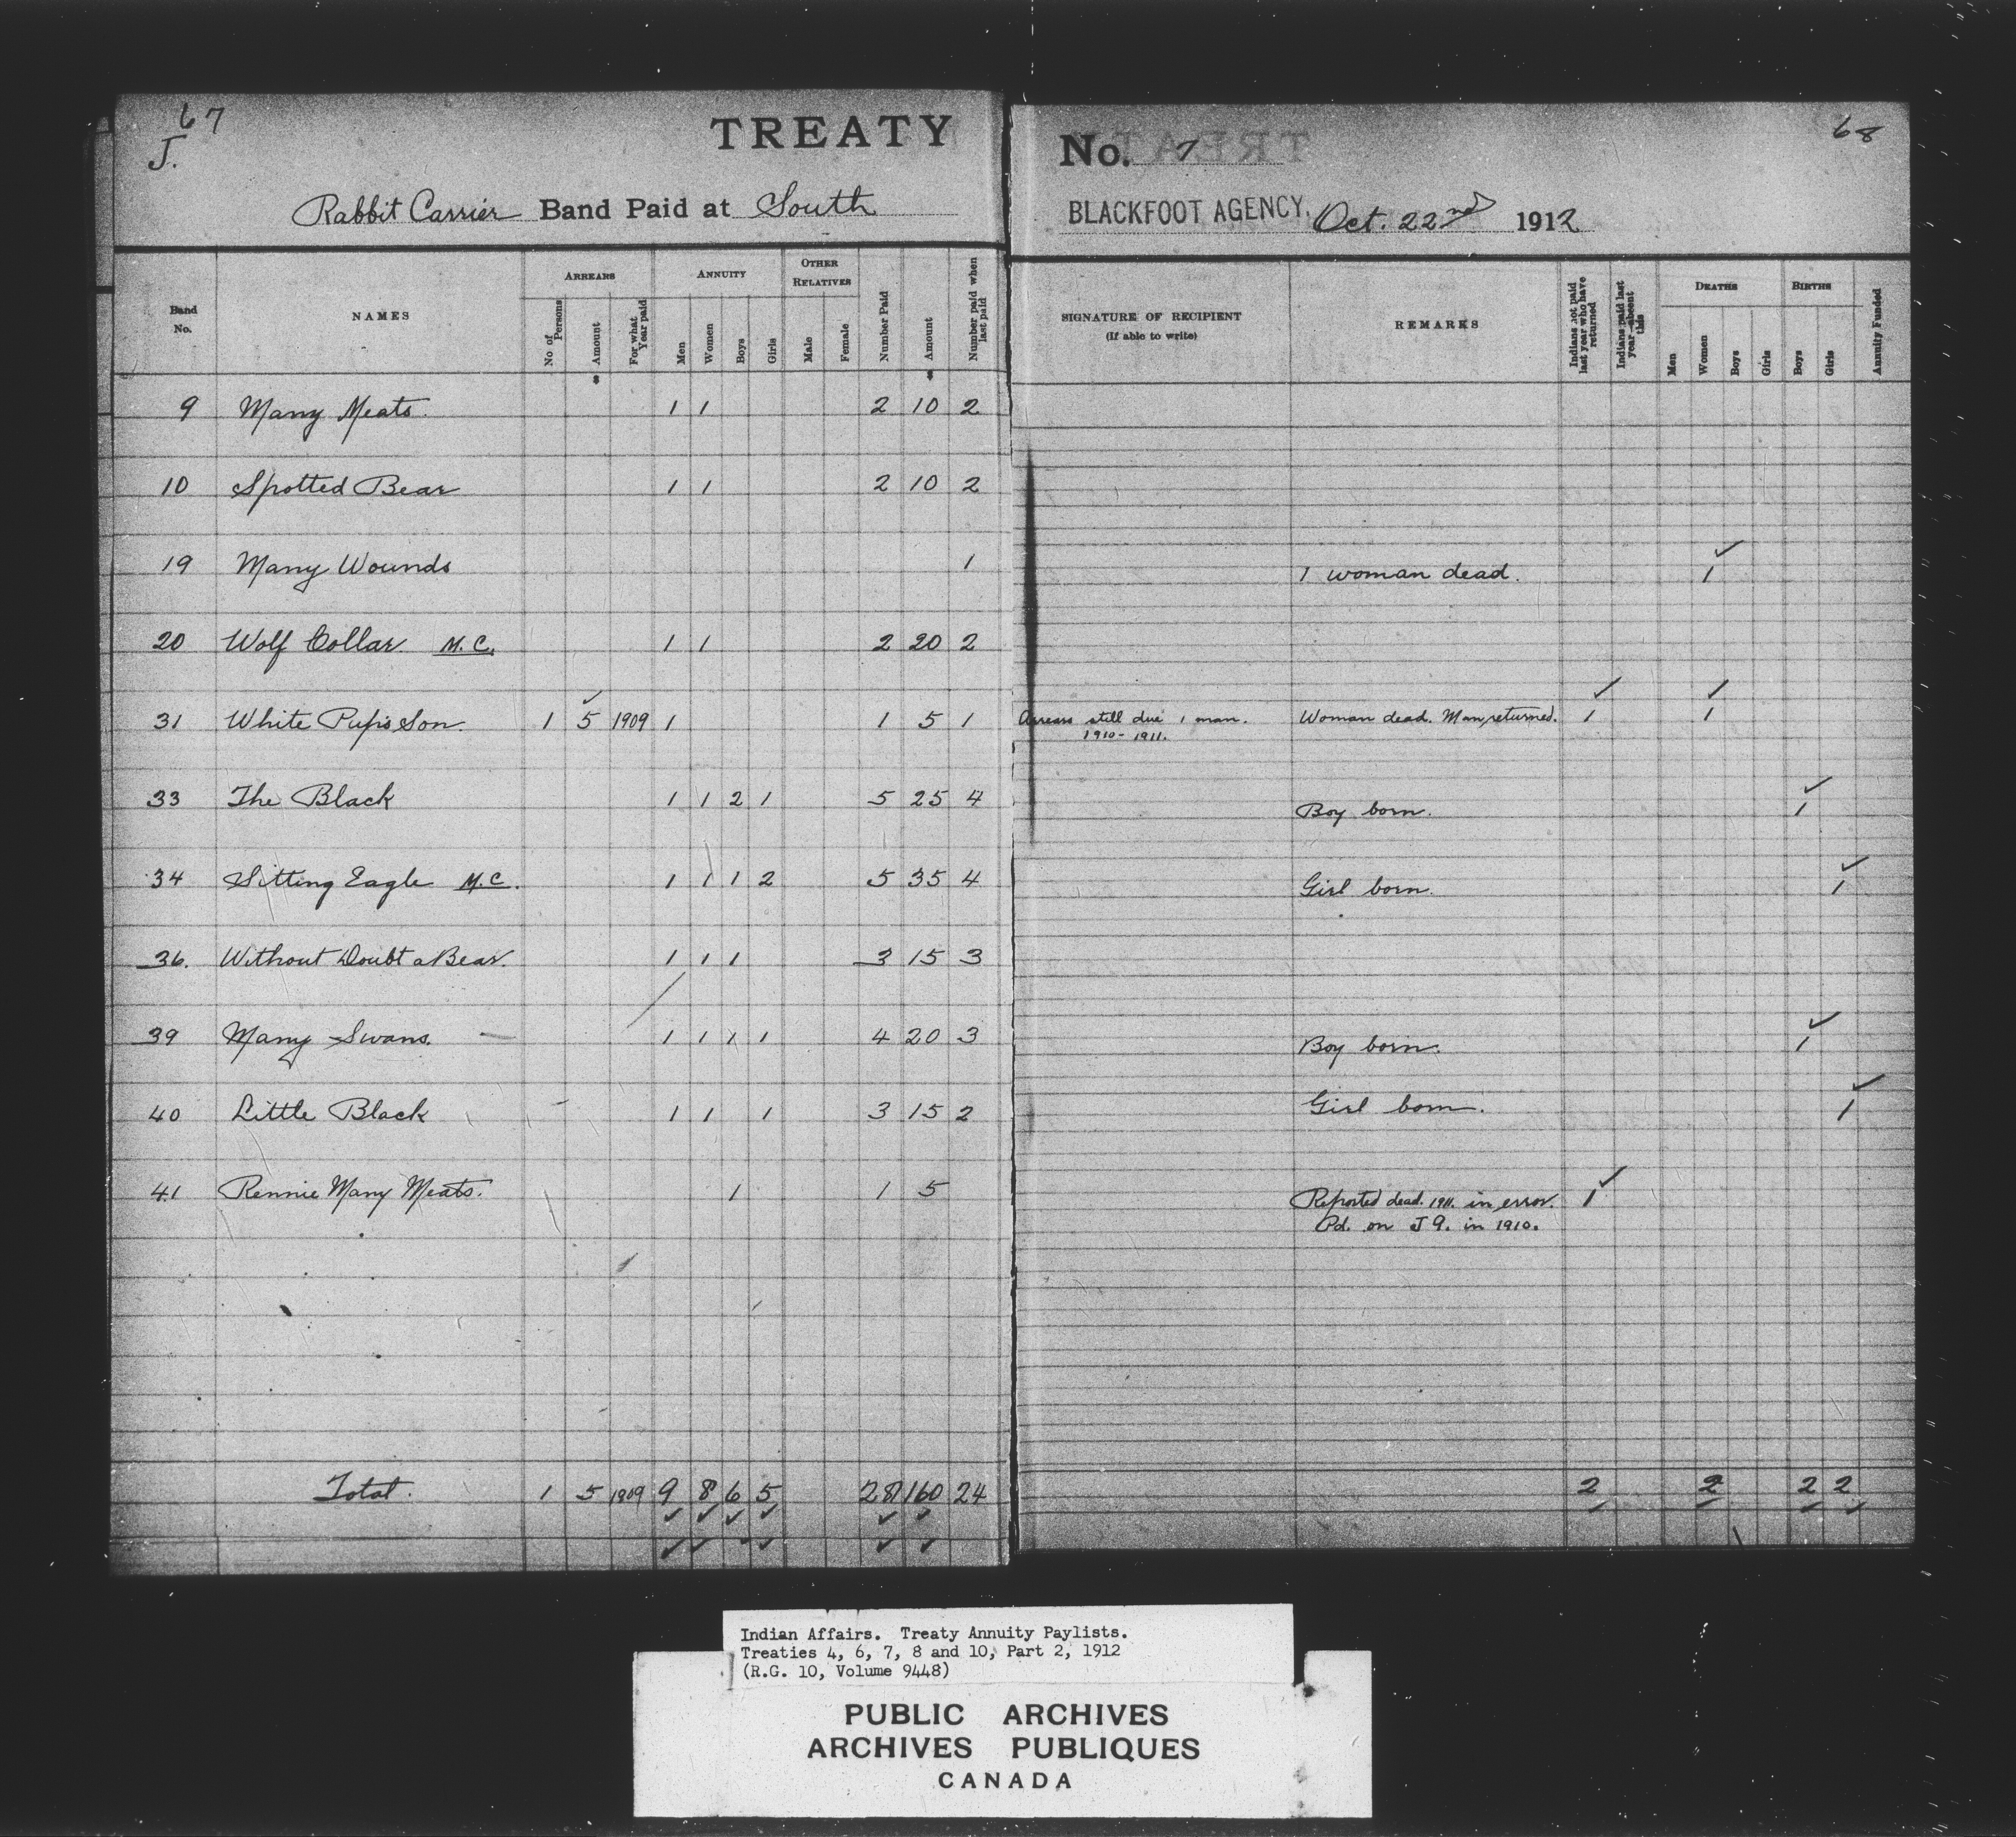 67
J.
TREATY
Rabbit Carrier Band Paid at South
No. 7
68
BLACKFOOT AGENCY, Oct. 22nd 1912
Band No.
NAMES
ARREARS
No of Persons
Amount
For what Year paid
ANNUITY
Men
Women
Boys
Girls
OTHER RELATIVES
Male
Female
Number Paid
Amount
Number paid when last paid
SIGNATURE OF RECIPIENT
(If able to write)
REMARKS
Indians not paid last year who have returned
Indians paid last year absent this
DEATHS
Men
Women
Boys
Girls
BIRTHS
Boys
Girls
Annuity Funded
9 Many Meats. 1 1 2 10 2
10 Spotted Bear 1 1 2 10 2
19 Many Wounds 1 1 woman dead. ✓ 1
20 Wolf Collar M.C. 1 1 2 20 2
31 White Pup's Son. 1 5 ✓ 1909 1 1 5 1 Arrears still due 1 man. Woman dead. Man returned. ✓ 1 ✓ 1
1910-1911.
33 The Black 1 1 2 1 5 25 4 Boy born. ✓ 1
34 Sitting Eagle M.C. 1 1 1 2 5 35 4 Girl born. ✓ 1
36. Without Doubt a Bear. 1 1 1 3 15 3
39 Many Swans. 1 1 1 1 4 20 3 Boy born. ✓ 1
40 Little Black 1 1 1 3 15 2 Girl born. ✓ 1
41 Rennie Many Meats. 1 1 5 Reported dead. 1911. in error. ✓ 1
Pd. on J 9. in 1910.
Total. 1 5 1909 9 8 6 5 28 160 24 2 2 2 2
Indian Affairs. Treaty Annuity Paylists.
Treaties 4, 6, 7, 8 and 10, Part 2, 1912
(R.G. 10, Volume 9448)
PUBLIC ARCHIVES
ARCHIVES PUBLIQUES
CANADA